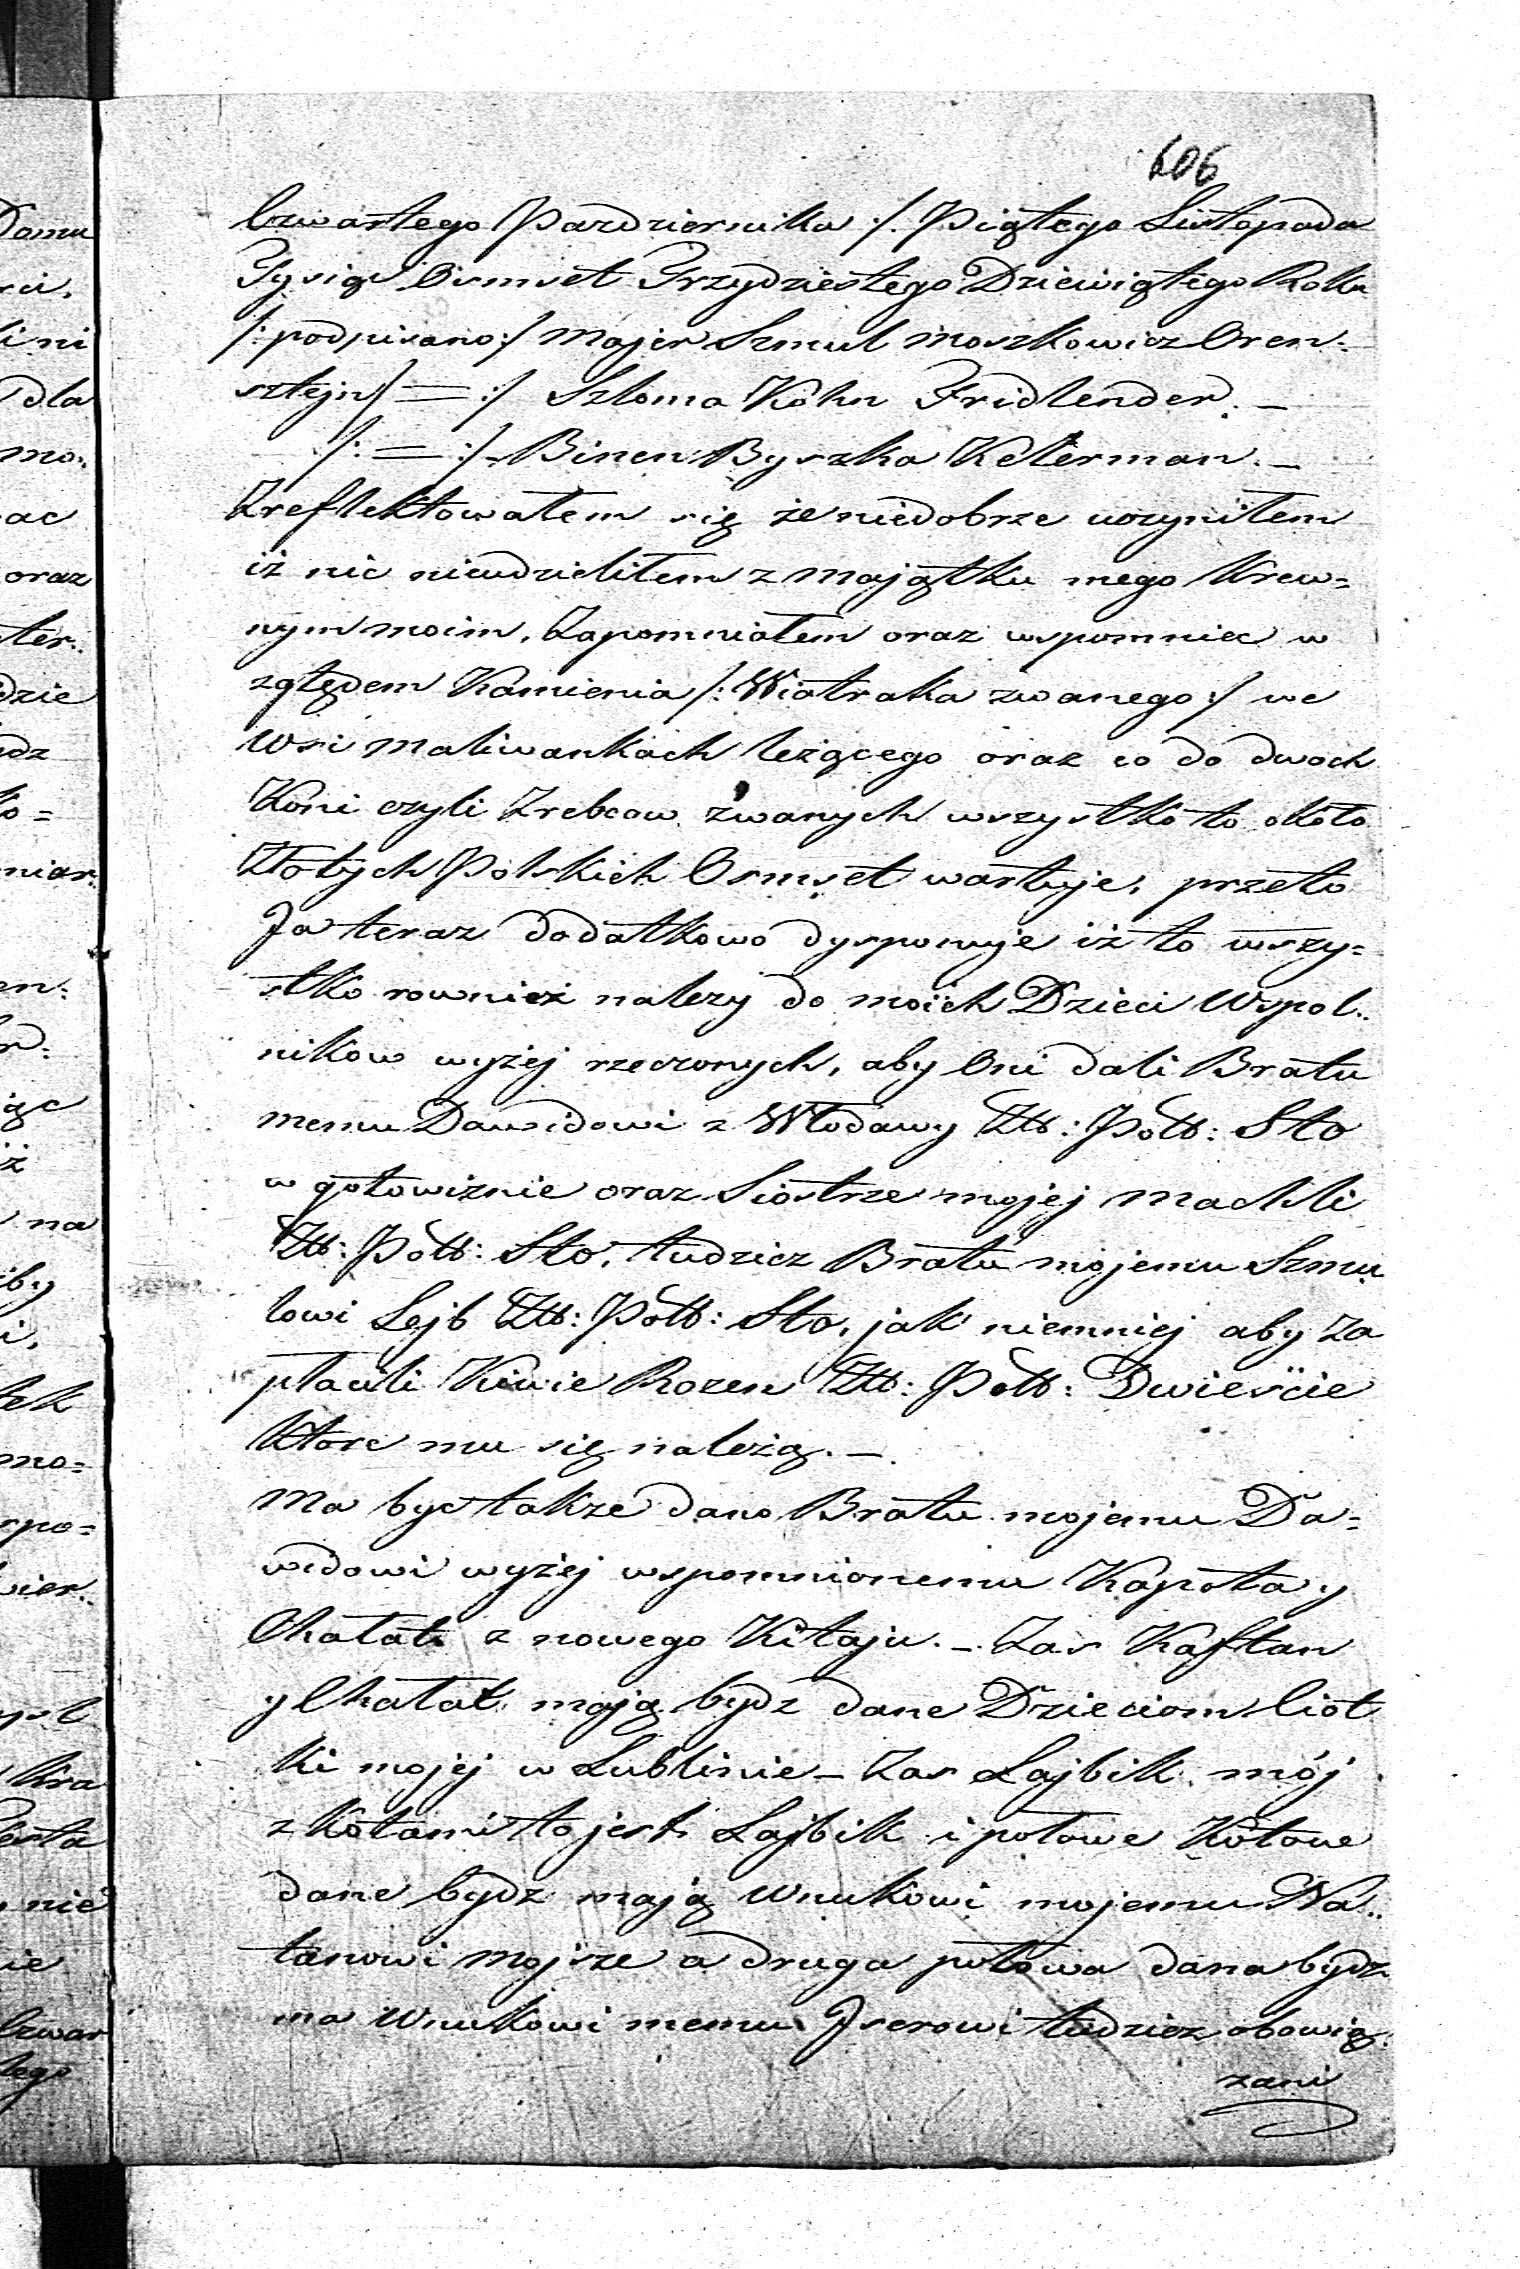 606
Czwartego Pazdziernika /. Piątego Listopada
Tysiąc Ośmset Trzydziestego Dziewiątego Roku
/: podpisano :/ Majer Szmul Moszkowicz Oren-
sztejn /: = :/ Szloma Kohn Fridlender. –
/: = :/ – Binen Byszka Kelerman. –
Zreflektowałem się że niedobrze uczyniłem
iż nic nieudzieliłem z majątku mego Krew=
nym moim, Zapomniałem oraz wspomniec w
zględem Kamienia /: Wiatraka zwanego :/ we
Wsi Maliwankach leżącego oraz co do dwoch
Koni czyli Zrebcow zwanych wszystko to około
Złotych Polskich Osmset wartuje, przeto
Ja teraz dodatkowo dysponuje iż to wszy=
stko rownież nalezy do moich Dzieci Wspol..
nikow wyżej rzeczonych, aby Oni dali Bratu
memu Dawidowi z Włodawy Zł: Pol: Sto
w gotowiznie oraz Siostrze mojej Machli
Zł: Pol: Sto, tudziez Bratu mojemu Szmu
lowi Lejb Zł: Pol: Sto, jak niemniej aby Za
płacili Kiwie Rozen Zł: Pol: Dwieście
Ktore mu się należą. –
Ma byc takze dano Bratu mojemu Da=
widowi wyżej wspomnionemu Kapota y
Chałat z nowego Kitaju. – Zas Kaftan
y Chałat mają bydz dane Dzieciom Ciot
ki mojej w Lublinie – Zas Lajbik mój
z Kotami to jest Lajbik i połowe Kotow
dane bydz mają Wnukowi mojemu Na..
tanowi Mojsze a druga połowa dana bydz
ma Wnukowi memu Jserowi tudziez obowią:
zani
Domu
dla
mo.
ac
oraz
ter..
dzie
dz
niar.
en:
ąc
na
mo=
spo=
nie
ie
Czwar
tego